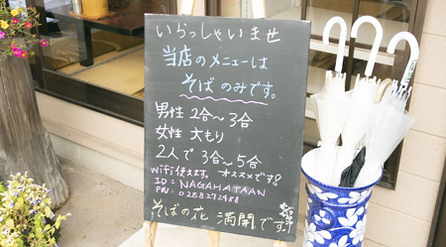 いらっしゃいませ
当店のメニューは
そばのみです。
男性 2合〜3合
女性 大もり
2人で 3合〜5合
WiFi使えます。オススメです!!
ID = NAGAHATAAN
PW: 0288272488
そばの花 満開です!!